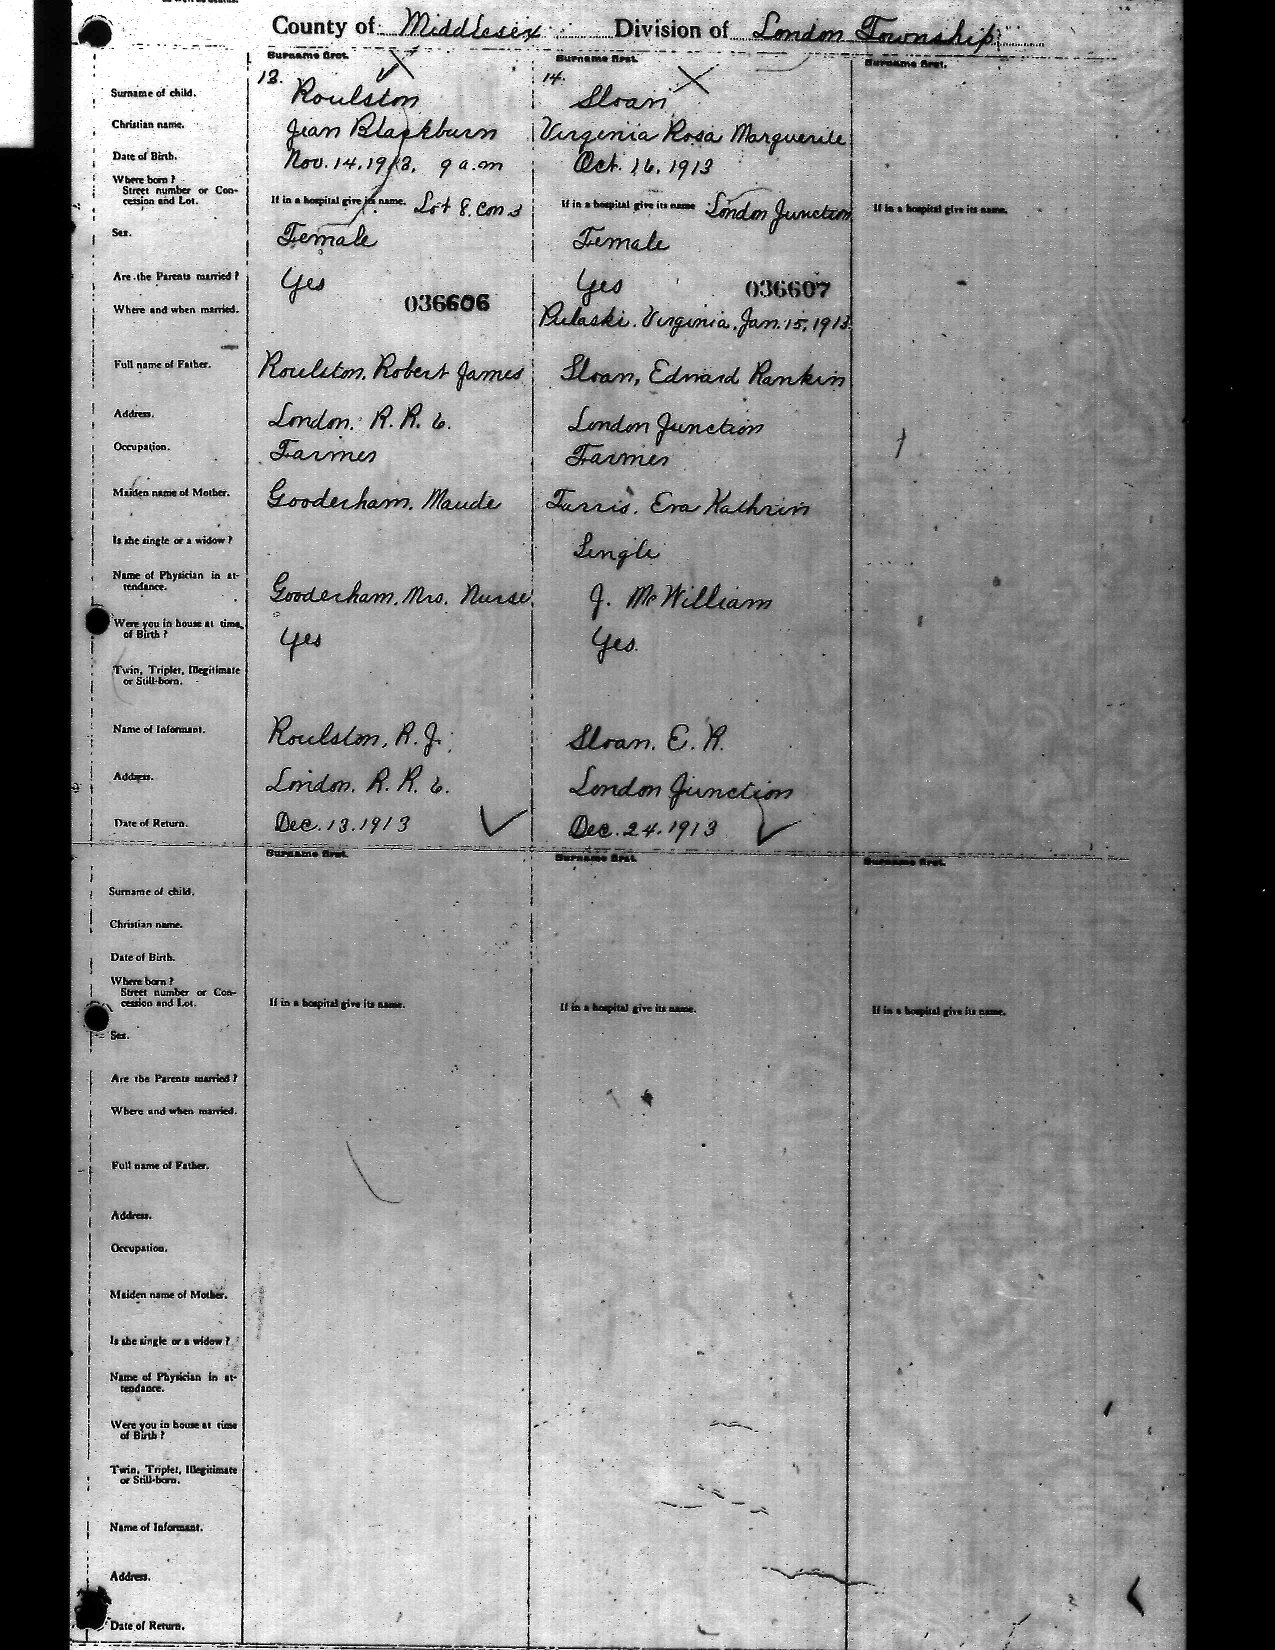 County of Middlesex Division of London Township
Surname first. Surname first. Surname first.
13. 14.
Surname of child. Roulston Sloan
Christian name. Jean Blackburn Virginia Rosa Marguerite
Date of Birth. Nov. 14. 1913. 9 a.m Oct. 16. 1913
Where born?
Street number or Con-
cession and Lot. If in a hospital give its name. Lot 8. Con 3 If in a hospital give its name London Junction If in a hospital give its name.
Sex. Female Female
Are the Parents married? Yes Yes
036606 036607
Where and when married. Pulaski. Virginia. Jan. 15, 1913.
Full name of Father. Roulston, Robert James Sloan, Edward Rankin
Address. London. R. R. 6. London Junction
Occupation. Farmer Farmer
Maiden name of Mother. Gooderham. Maude Eva Kathrin
Is she single or a widow? Single
Name of Physician in at-
tendance. Gooderham. Mrs. Nurse J. McWilliam
Were you in house at time
of Birth? Yes Yes.
Twin, Triplet, Illegitimate
or Still-born.
Name of Informant. Roulston, R. J. Sloan. E. R.
Address. London. R. R. 6. London Junction
Date of Return. Dec. 13. 1913 Dec. 24. 1913
Surname first. Surname first. Surname first.
Surname of child.
Christian name.
Date of Birth.
Where born?
Street number or Con-
cession and Lot. If in a hospital give its name. If in a hospital give its name. If in a hospital give its name.
Sex.
Are the Parents married?
Where and when married.
Full name of Father.
Address.
Occupation.
Maiden name of Mother.
Is she single or a widow?
Name of Physician in at-
tendance.
Were you in house at time
of Birth?
Twin, Triplet, Illegitimate
or Still-born.
Name of Informant.
Address.
Date of Return.